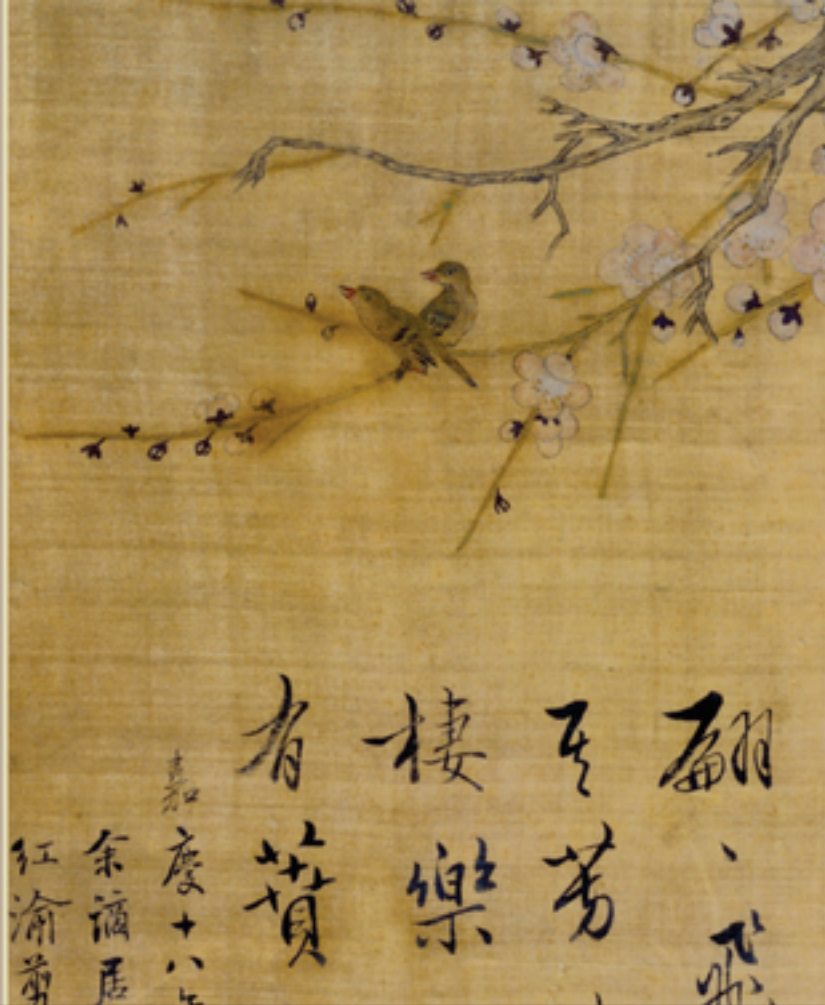 翩〻飛
其芳
棲樂
有蕡
嘉慶十八年
余謫居
紅渝剪